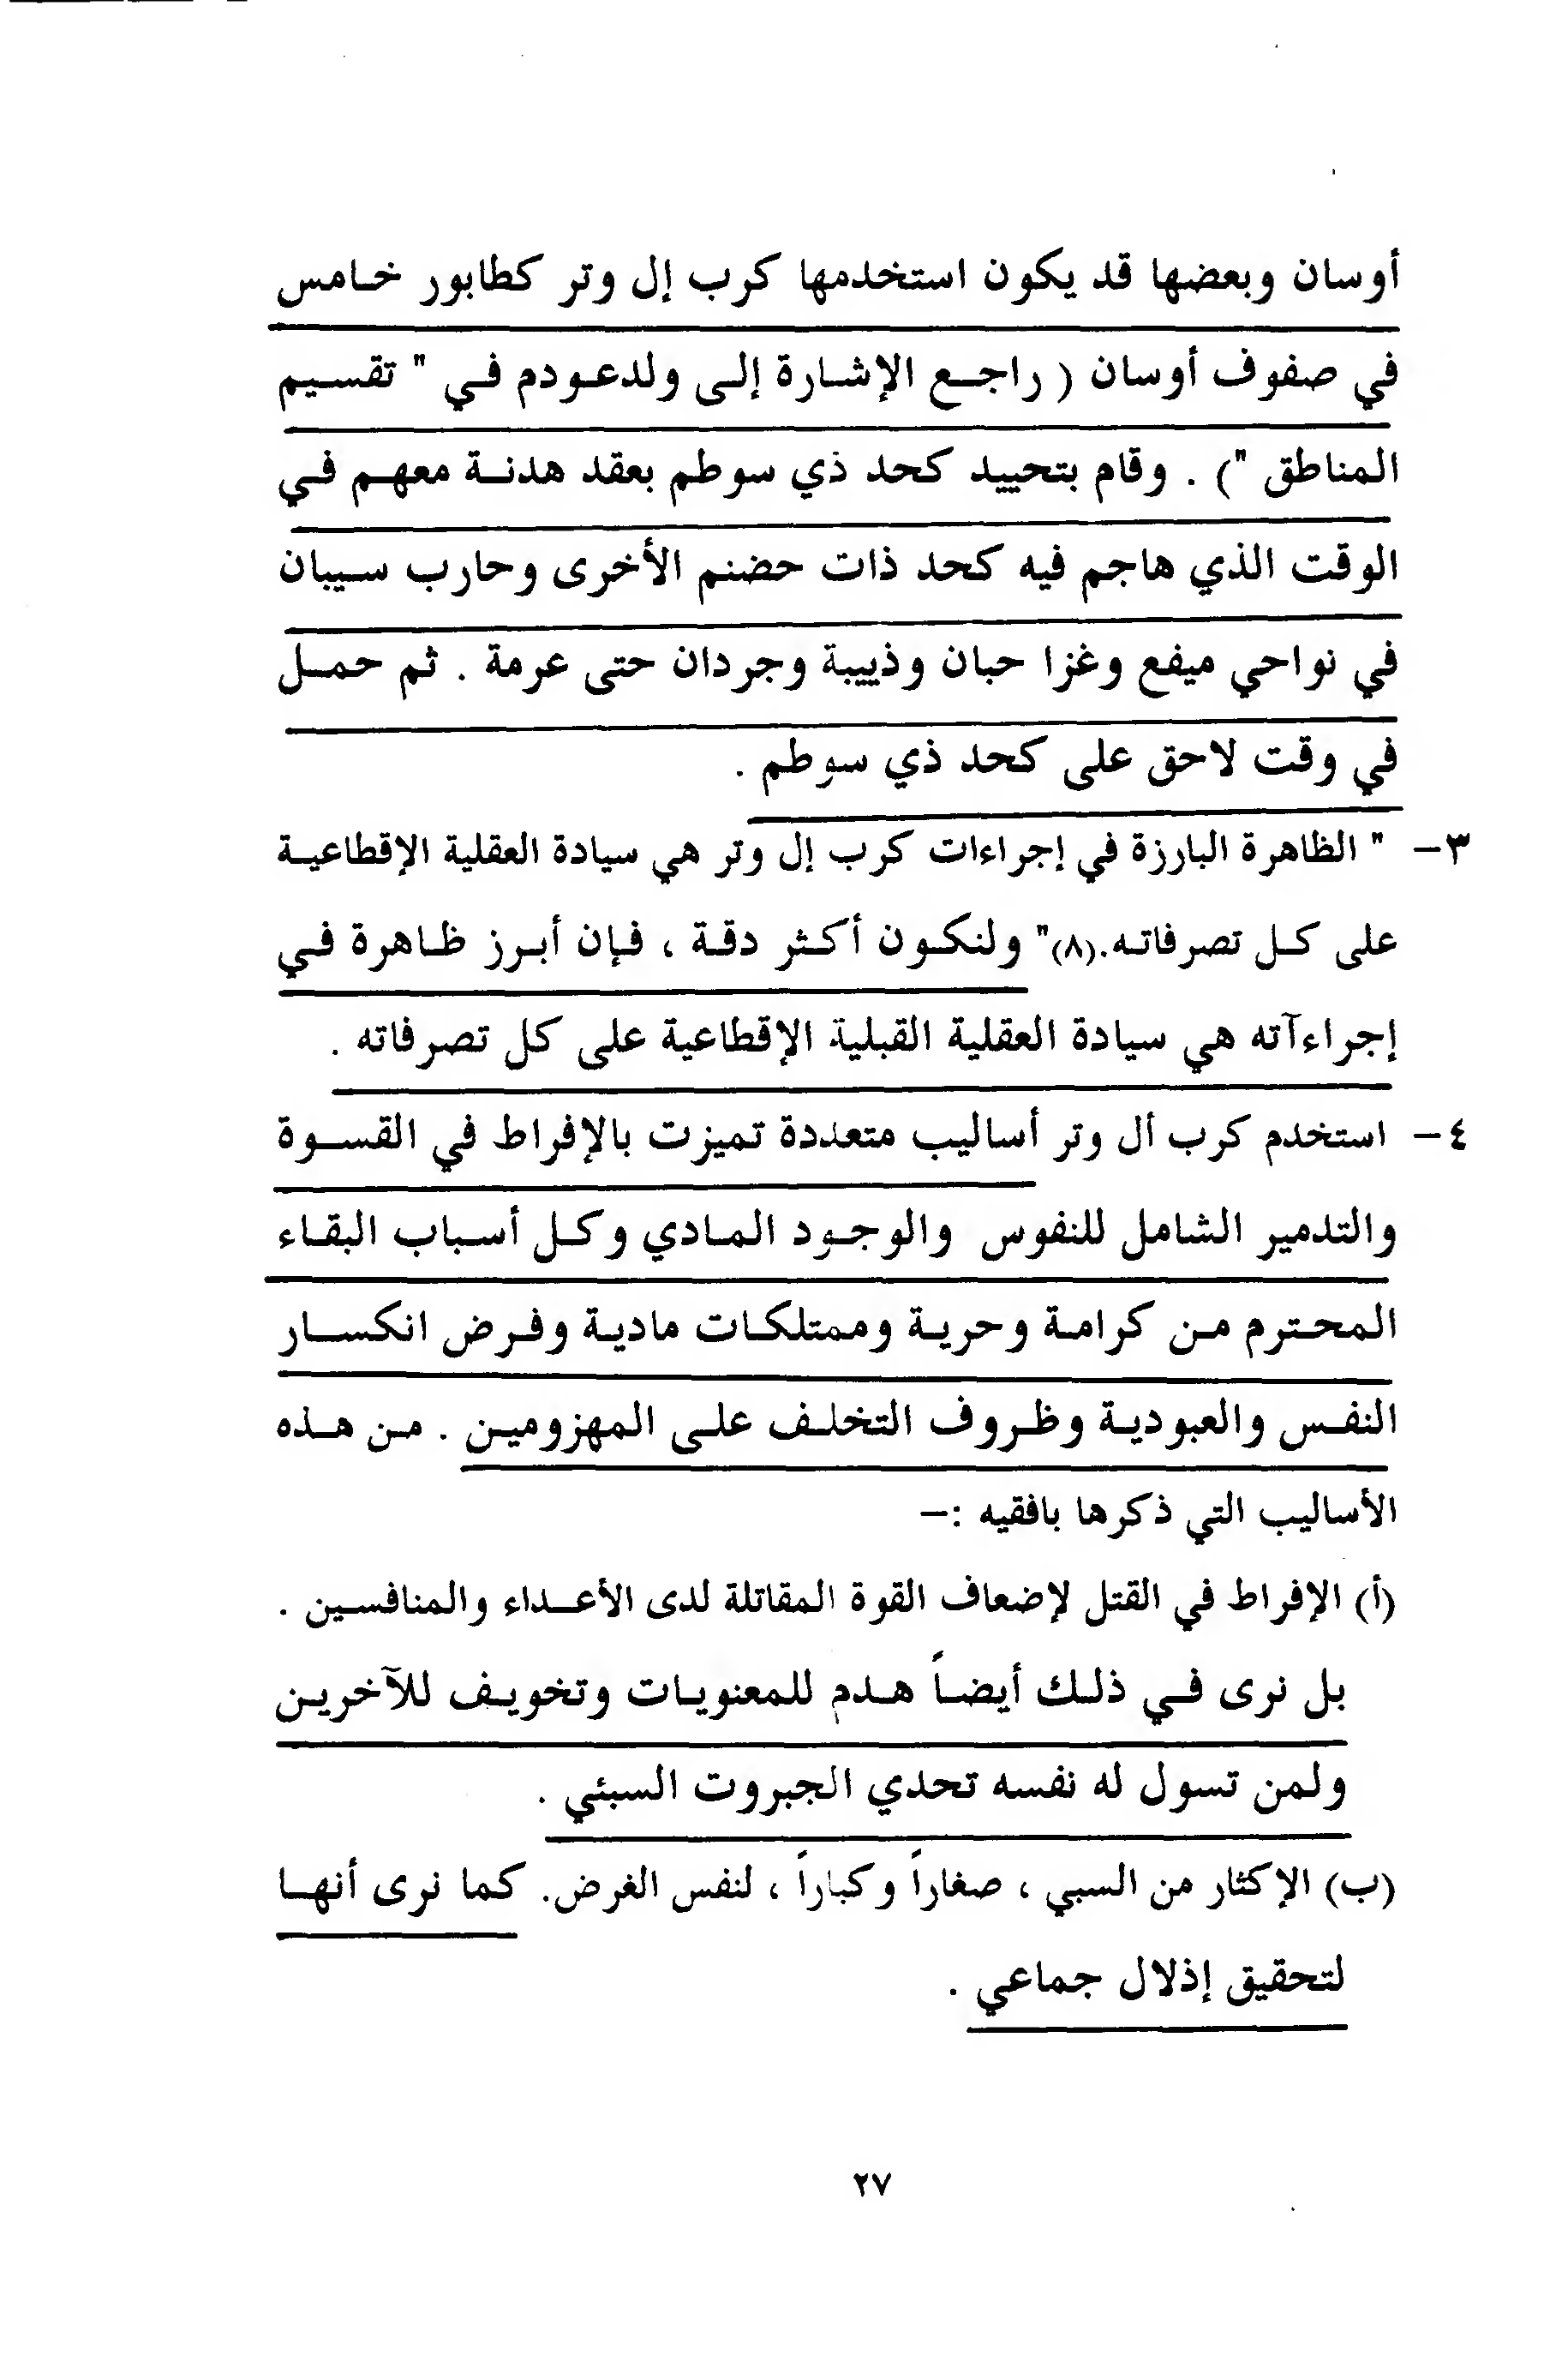 أوسان وبعضها قد يكون استخدمها كرب إل وتر كطابور خامس
في صفوف أوسان ( راجع الإشارة إلى ولدعودم في " تقسيم
المناطق ") . وقام بتحييد كحد ذي سوطم بعقد هدنة معهم في
الوقت الذي هاجم فيه كحد ذات حضنم الأخرى وحارب سيبان
في نواحي ميفع وغزا حبان وذييبة وجردان حتى عرمة . ثم حمل
في وقت لاحق على كحد ذي سوطم .
٣- " الظاهرة البارزة في إجراءات كرب إل وتر هي سيادة العقلية الإقطاعية
على كل تصرفاته.(٨)" ولنكون أكثر دقة ، فإن أبرز ظاهرة في
إجراءآته هي سيادة العقلية القبلية الإقطاعية على كل تصرفاته .
٤- استخدم كرب أل وتر أساليب متعددة تميزت بالإفراط في القسوة
والتدمير الشامل للنفوس والوجود المادي وكل أسباب البقاء
المحترم من كرامة وحرية وممتلكات مادية وفرض انكسار
النفس والعبودية وظروف التخلف على المهزومين . من هذه
الأساليب التي ذكرها بافقيه :-
(أ) الإفراط في القتل لإضعاف القوة المقاتلة لدى الأعداء والمنافسين .
بل نرى في ذلك أيضاً هدم للمعنويات وتخويف للآخرين
ولمن تسول له نفسه تحدي الجبروت السبئي .
(ب) الإكثار من السبي ، صغاراً وكباراً ، لنفس الغرض. كما نرى أنها
لتحقيق إذلال جماعي .
٢٧